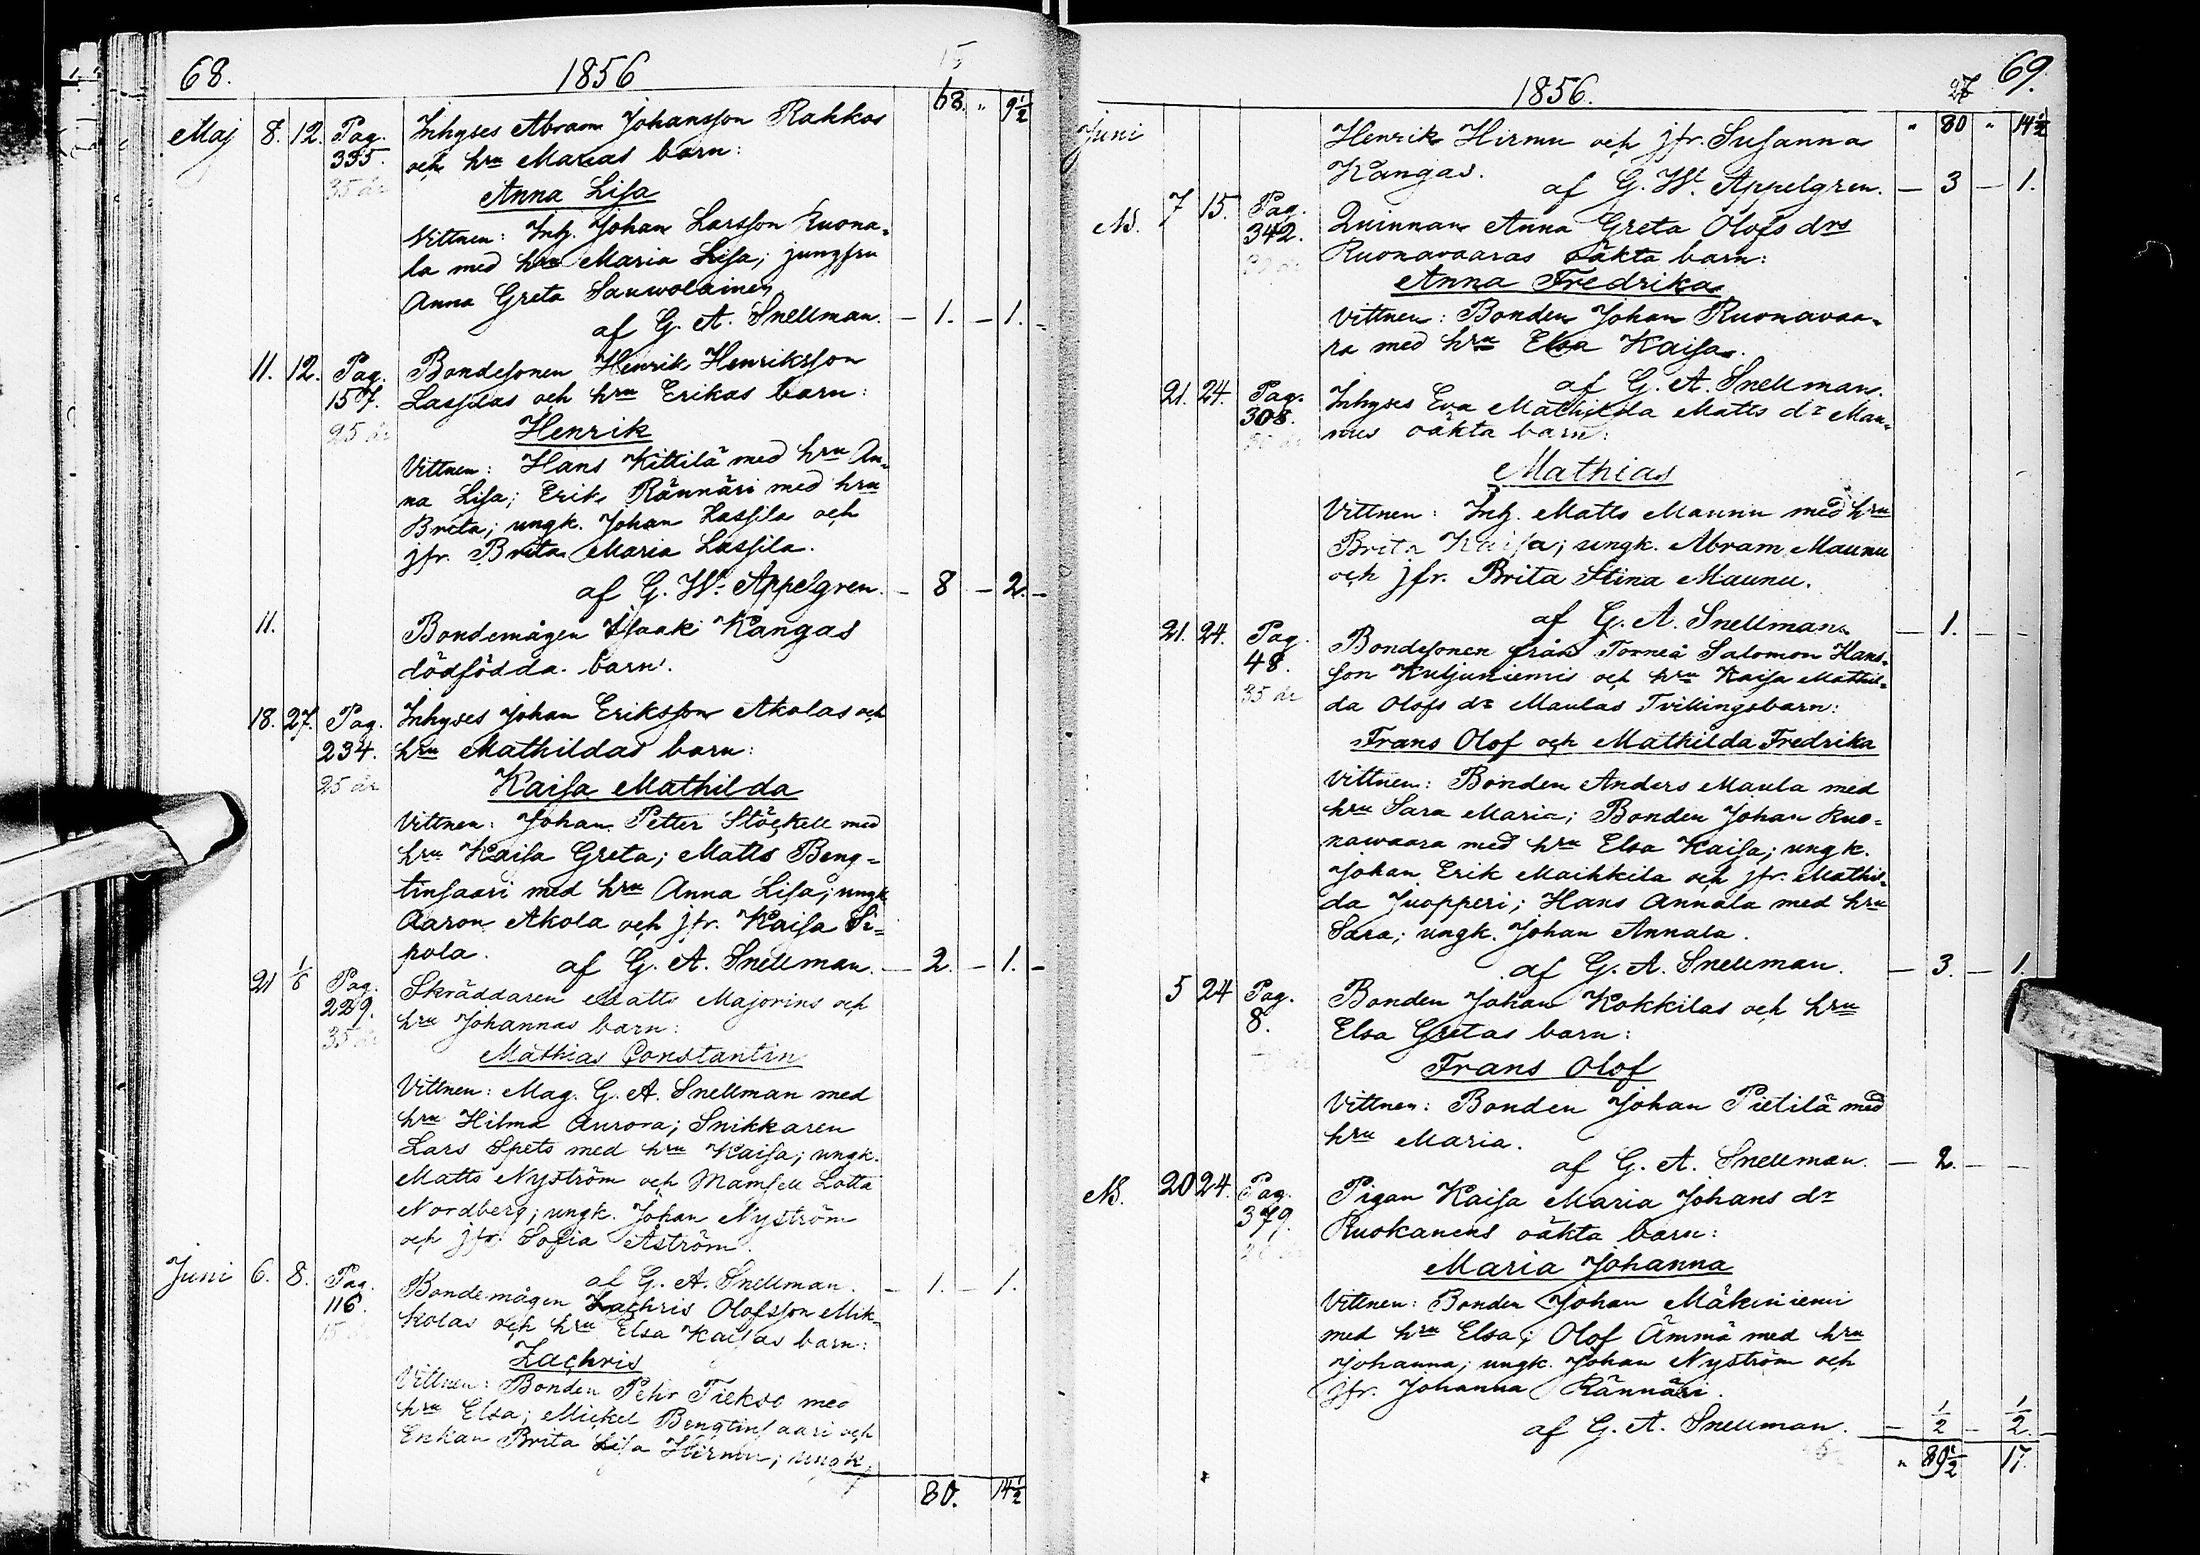 68. 1856 15
68. " 9 1/2
Maj 8. 12. Pag. 335. 35 år
Inhyses Abram Johansson Rahkos
och hru Marias barn:
Anna Lisa
Vittnen: Inh. Johan Larsson Ruona-
la med hru Maria Lisa; jungfru
Anna Greta Sauwolainen
af G. A. Snellman. — 1. — 1. —
11. 12. Pag. 157. 25 år
Bondesonen Henrik Henriksson
Lassilas och hru Erikas barn:
Henrik
Vittnen: Hans Kittilä med hru An-
na Lisa; Erik Rännäri med hru
Brita; ungk. Johan Lassila och
jfr. Brita Maria Lassila.
af G. W. Appelgren. — 8 — 2. —
11.
Bondemågen Isaak Kangas
dödfödda barn.
18. 27. Pag. 234. 25 år
Inhyses Johan Eriksson Akolas och
hru Mathildas barn:
Kaisa Mathilda
Vittnen: Johan Petter Stöckell med
hru Kaisa Greta; Matts Beng-
tinsaari med hru Anna Lisa; ungk.
Aaron Akola och jfr. Kaisa Si-
pola.
af G. A. Snellman. — 2. — 1. —
21 1/6 Pag. 229. 35 år
Skräddaren Matts Majorins och
hru Johannas barn:
Mathias Constantin
Vittnen: Mag. G. A. Snellman med
hru Hilma Aurora; Snikkaren
Lars Spets med hru Kaisa; ungk.
Matts Nyström och Mamsell Lotta
Nordberg; ungk. Johan Nyström
och jfr. Sofia Åström.
af G. A. Snellman. — 1. — 1.
Juni 6. 8. Pag. 116.
Bondemågen Zachris Olofsson Mik-
kolas och hru Elsa Kaisas barn:
Zachris
Vittnen: Bonden Pehr Tiekso med
hru Elsa; Mickel Bengtinsaari och
Enkan Brita Lisa Hirmu; ungk.
80. 14 1/2
1856. 27 69.
Juni " 80 " 14 1/2
Henrik Hirmu och jfr. Susanna
Kangas.
af G. W. Appelgren. — 3 — 1.
NB. 7 15. Pag. 342.
Quinnan Anna Greta Olofs drs
Ruonavaaras oäkta barn:
Anna Fredrika
Vittnen: Bonden Johan Ruonavaa-
ra med hru Elsa Kaisa.
af G. A. Snellman.
21. 24. Pag. 308.
Inhyses Eva Mathilda Matts dr Mau-
nus oäkta barn:
Mathias
Vittnen: Inh. Matts Maunu med hru
Brita Kaisa; ungk. Abram Maunu
och jfr. Brita Stina Maunu.
af G. A. Snellman. — 1. — —
21. 24. Pag. 48. 35 år
Bondesonen från Torneå Salomon Hans-
son Kuljuniemis och hru Kaisa Mathil-
da Olofs dr Maulas Tvillingsbarn:
Frans Olof och Mathilda Fredrika
Vittnen: Bonden Anders Maula med
hru Sara Maria; Bonden Johan Ruo-
nawaara med hru Elsa Kaisa; ungk.
Johan Erik Maihkila och jfr. Mathil-
da Juopperi; Hans Annala med hru
Sara; ungk. Johan Annala.
af G. A. Snellman. — 3. — 1.
5 24 Pag. 8.
Bonden Johan Kokkilas och hru
Elsa Gretas barn:
Frans Olof
Vittnen: Bonden Johan Pietilä med
hru Maria.
af G. A. Snellman. — 2. — —
NB. 20 24. Pag. 379.
Pigan Kaisa Maria Johans dr
Ruokanens oäkta barn:
Maria Johanna
Vittnen: Bonden Johan Mäkiniemi
med hru Elsa; Olof Ämmä med hru
Johanna; ungk. Johan Nyström och
jfr. Johanna Rännäri.
af G. A. Snellman. — 1/2 — 1/2 —
" 89 1/2 17